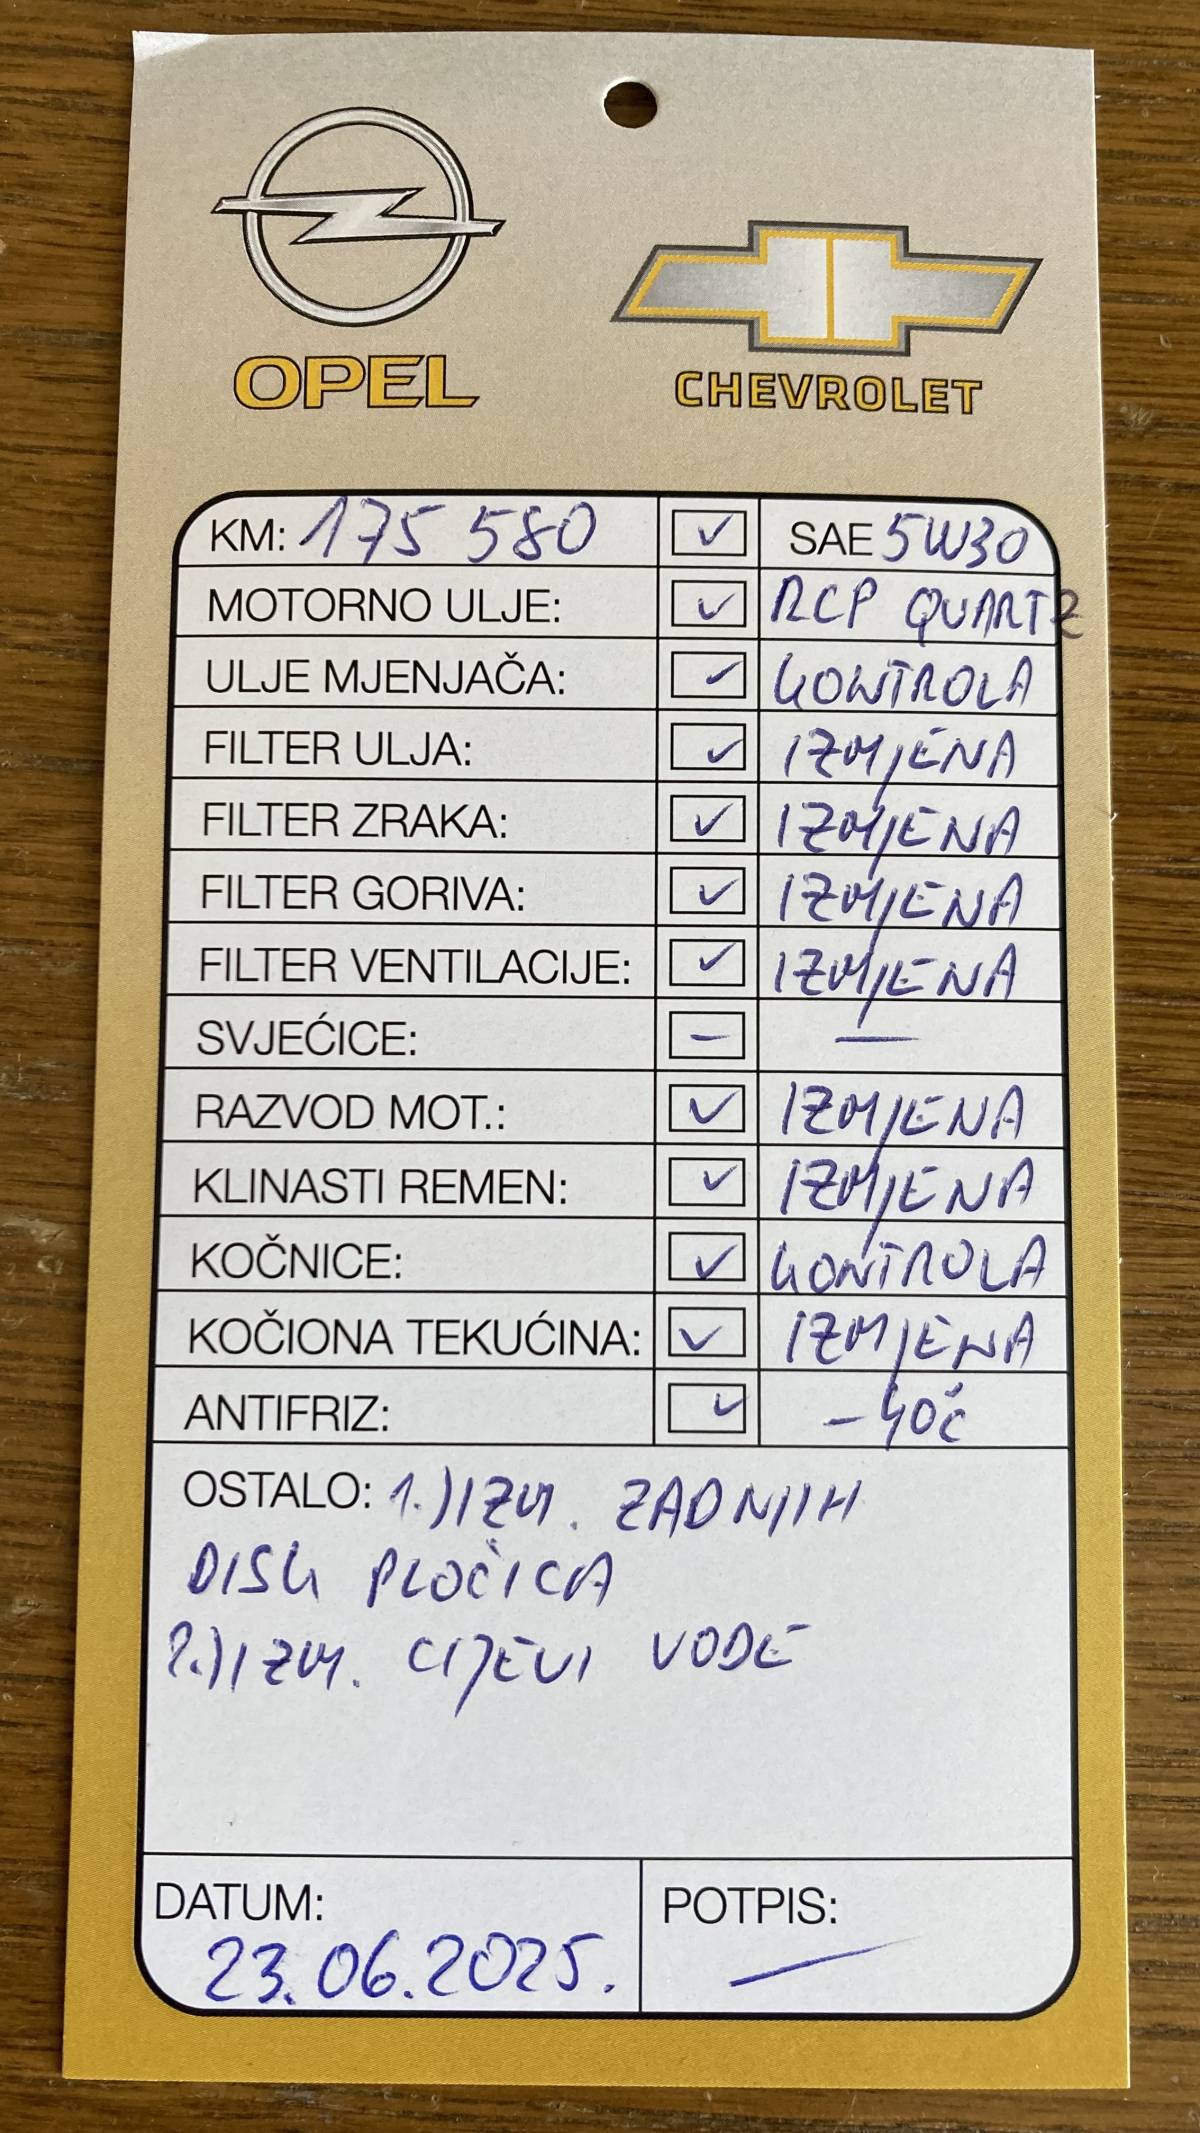 OPEL
CHEVROLET
KM: 175 580 ✓ SAE 5W30
MOTORNO ULJE: ✓ RCP QUARTZ
ULJE MJENJAČA: ✓ KONTROLA
FILTER ULJA: ✓ IZMJENA
FILTER ZRAKA: ✓ IZMJENA
FILTER GORIVA: ✓ IZMJENA
FILTER VENTILACIJE: ✓ IZMJENA
SVJEĆICE: – —
RAZVOD MOT.: ✓ IZMJENA
KLINASTI REMEN: ✓ IZMJENA
KOČNICE: ✓ KONTROLA
KOČIONA TEKUĆINA: ✓ IZMJENA
ANTIFRIZ: ✓ -40°C
OSTALO: 1.) IZM. ZADNJIH
DISK PLOČICA
2.) IZM. CIJEVI VODE
DATUM: POTPIS:
23.06.2025. —